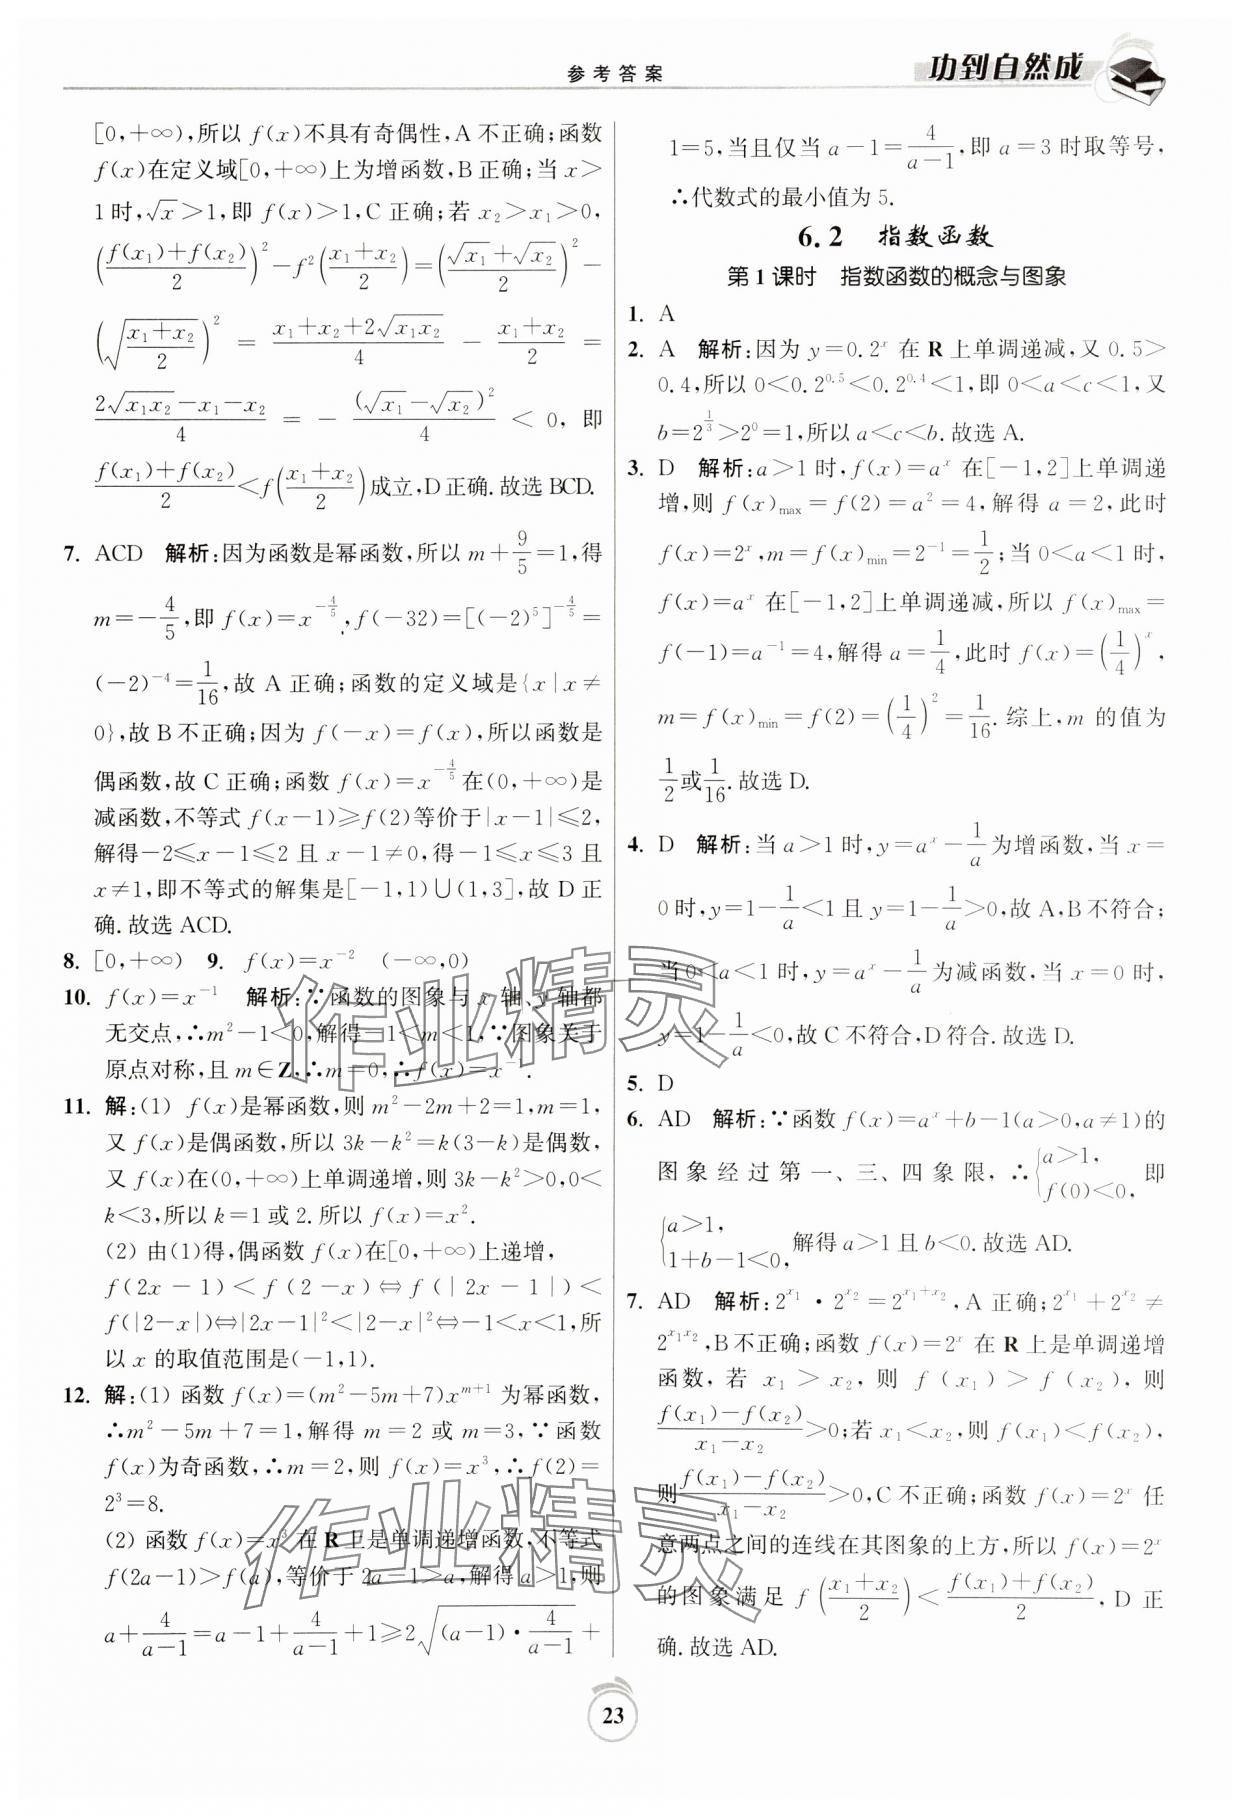 参考答案
功到自然成
[0,+∞),所以 f(x)不具有奇偶性,A 不正确;函数
f(x)在定义域[0,+∞)上为增函数,B 正确;当 x>
1时,√x>1,即 f(x)>1,C 正确;若 x₂>x₁>0,
((f(x₁)+f(x₂))/2)²−f²((x₁+x₂)/2)=((√x₁+√x₂)/2)²−
(√((x₁+x₂)/2))² = (x₁+x₂+2√(x₁x₂))/4 − (x₁+x₂)/2 =
(2√(x₁x₂)−x₁−x₂)/4 = −(√x₁−√x₂)²/4 < 0, 即
(f(x₁)+f(x₂))/2<f((x₁+x₂)/2)成立,D 正确.故选 BCD.
7. ACD 解析:因为函数是幂函数,所以 m+9/5=1,得
m=−4/5,即 f(x)=x^(−4/5),f(−32)=[(−2)⁵]^(−4/5)=
(−2)⁻⁴=1/16,故 A 正确;函数的定义域是{x|x≠
0},故 B 不正确;因为 f(−x)=f(x),所以函数是
偶函数,故 C 正确;函数 f(x)=x^(−4/5)在(0,+∞)是
减函数,不等式 f(x−1)≥f(2)等价于|x−1|≤2,
解得−2≤x−1≤2 且 x−1≠0,得−1≤x≤3 且
x≠1,即不等式的解集是[−1,1)∪(1,3],故 D 正
确.故选 ACD.
8. [0,+∞) 9. f(x)=x⁻² (−∞,0)
10. f(x)=x⁻¹ 解析:∵函数的图象与 x 轴、y 轴都
无交点,∴m²−1<0,解得−1<m<1,∵图象关于
原点对称,且 m∈Z,∴m=0,∴f(x)=x⁻¹.
11. 解:(1) f(x)是幂函数,则 m²−2m+2=1,m=1,
又 f(x)是偶函数,所以 3k−k²=k(3−k)是偶数,
又 f(x)在(0,+∞)上单调递增,则 3k−k²>0,0<
k<3,所以 k=1 或 2.所以 f(x)=x².
(2) 由(1)得,偶函数 f(x)在[0,+∞)上递增,
f(2x−1)<f(2−x)⇔f(|2x−1|)<
f(|2−x|)⇔|2x−1|²<|2−x|²⇔−1<x<1,所
以 x 的取值范围是(−1,1).
12. 解:(1) 函数 f(x)=(m²−5m+7)x^(m+1) 为幂函数,
∴m²−5m+7=1,解得 m=2 或 m=3,∵函数
f(x)为奇函数,∴m=2,则 f(x)=x³,∴f(2)=
2³=8.
(2) 函数 f(x)=x³ 在 R 上是单调递增函数,不等式
f(2a−1)>f(a),等价于 2a−1>a,解得 a>1,则
a+4/(a−1)=a−1+4/(a−1)+1≥2√((a−1)·4/(a−1))+
1=5,当且仅当 a−1=4/(a−1),即 a=3 时取等号,
∴代数式的最小值为 5.
6.2 指数函数
第 1 课时 指数函数的概念与图象
1. A
2. A 解析:因为 y=0.2ˣ 在 R 上单调递减,又 0.5>
0.4,所以 0<0.2^0.5<0.2^0.4<1,即 0<a<c<1,又
b=2^(1/3)>2⁰=1,所以 a<c<b.故选 A.
3. D 解析:a>1 时,f(x)=aˣ 在[−1,2]上单调递
增,则 f(x)max=f(2)=a²=4,解得 a=2,此时
f(x)=2ˣ,m=f(x)min=2⁻¹=1/2;当 0<a<1 时,
f(x)=aˣ 在[−1,2]上单调递减,所以 f(x)max=
f(−1)=a⁻¹=4,解得 a=1/4,此时 f(x)=(1/4)ˣ,
m=f(x)min=f(2)=(1/4)²=1/16.综上,m 的值为
1/2或1/16.故选 D.
4. D 解析:当 a>1 时,y=aˣ−1/a为增函数,当 x=
0 时,y=1−1/a<1 且 y=1−1/a>0,故 A,B 不符合;
当 0<a<1 时,y=aˣ−1/a为减函数,当 x=0 时,
y=1−1/a<0,故 C 不符合,D 符合.故选 D.
5. D
6. AD 解析:∵函数 f(x)=aˣ+b−1(a>0,a≠1)的
图象经过第一、三、四象限,∴{a>1, f(0)<0, 即
{a>1, 1+b−1<0, 解得 a>1 且 b<0.故选 AD.
7. AD 解析:2^(x₁)·2^(x₂)=2^(x₁+x₂),A 正确;2^(x₁)+2^(x₂)≠
2^(x₁x₂),B 不正确;函数 f(x)=2ˣ 在 R 上是单调递增
函数,若 x₁>x₂,则 f(x₁)>f(x₂),则
(f(x₁)−f(x₂))/(x₁−x₂)>0;若 x₁<x₂,则 f(x₁)<f(x₂),
则(f(x₁)−f(x₂))/(x₁−x₂)>0,C 不正确;函数 f(x)=2ˣ 任
意两点之间的连线在其图象的上方,所以 f(x)=2ˣ
的图象满足 f((x₁+x₂)/2)<(f(x₁)+f(x₂))/2,D 正
确.故选 AD.
作业精灵
作业精灵
23